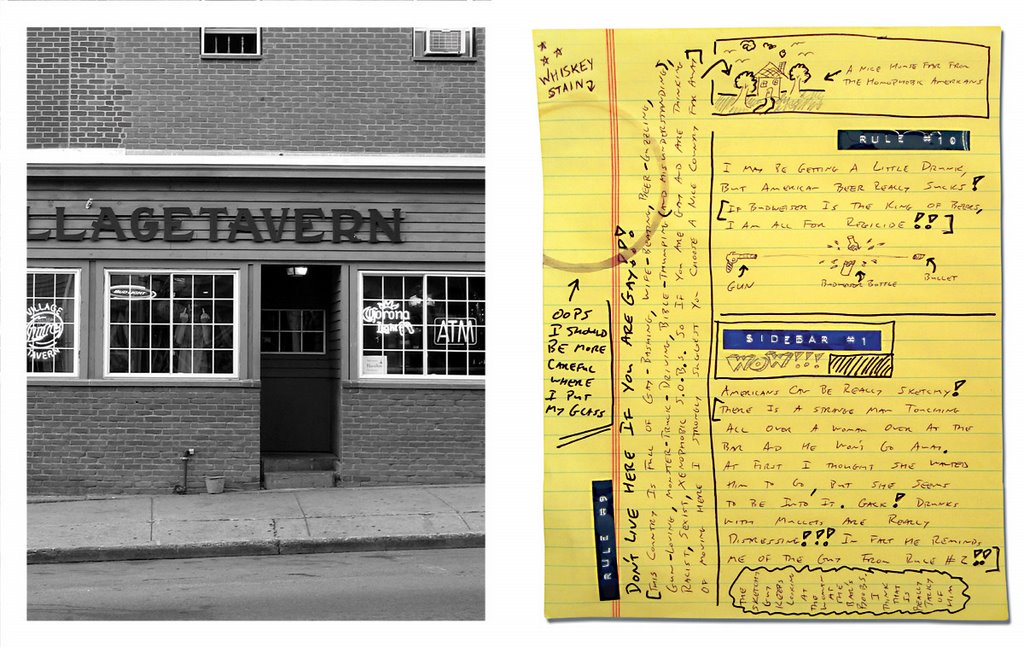 LLAGE TAVERN
BUD LIGHT
VILLAGE
TAVERN
Corona
Light
ATM
WHISKEY
STAIN
OOPS
I SHOULD
BE MORE
CAREFUL
WHERE
I PUT
MY GLASS
RULE #9
DON'T LIVE HERE IF YOU ARE GAY!!
[THIS COUNTRY IS FULL OF GAY-BASHING, WIFE-BEATING, BEER-GUZZLING,
GUN-LOVING, MONSTER-TRUCK-DRIVING, BIBLE-THUMPING (AND MISUNDERSTANDING),
RACIST, SEXIST, XENOPHOBIC S.O.B.S. SO IF YOU ARE GAY AND ARE THINKING
OF MOVING HERE I STRONGLY SUGGEST YOU CHOOSE A NICE COUNTRY FAR AWAY]
A NICE HOUSE FAR FROM
THE HOMOPHOBIC AMERICANS
RULE #10
I MAY BE GETTING A LITTLE DRUNK,
BUT AMERICAN BEER REALLY SUCKS!
[IF BUDWEISER IS THE KING OF BEERS,
I AM ALL FOR REGICIDE!!]
GUN
BUDWEISER BOTTLE
BULLET
SIDEBAR #1
WOW!!!
AMERICANS CAN BE REALLY SKETCHY!
[THERE IS A STRANGE MAN TOUCHING
ALL OVER A WOMAN OVER AT THE
BAR AND HE WON'T GO AWAY.
AT FIRST I THOUGHT SHE WANTED
HIM TO GO, BUT SHE SEEMS
TO BE INTO IT. GACK! DRUNKS
WITH MULLETS ARE REALLY
DISTRESSING!!! IN FACT HE REMINDS
ME OF THE GUY FROM RULE #2!!]
THE
SKETCHY
GUY
KEEPS
LOOKING
AT
THE
WOMAN
AT
THE
BAR'S
BOOBS,
I
THINK
THAT
IS
REALLY
TACKY
OF
HIM